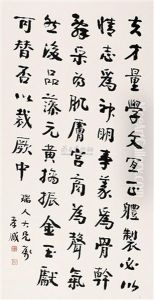 夫才量學文宜正體製必以
情志為神明事義為骨幹
辭采為肌膚宮商為聲氣
然後品藻元黃摛振金玉獻
可替否以裁厥中
瑞人大兄